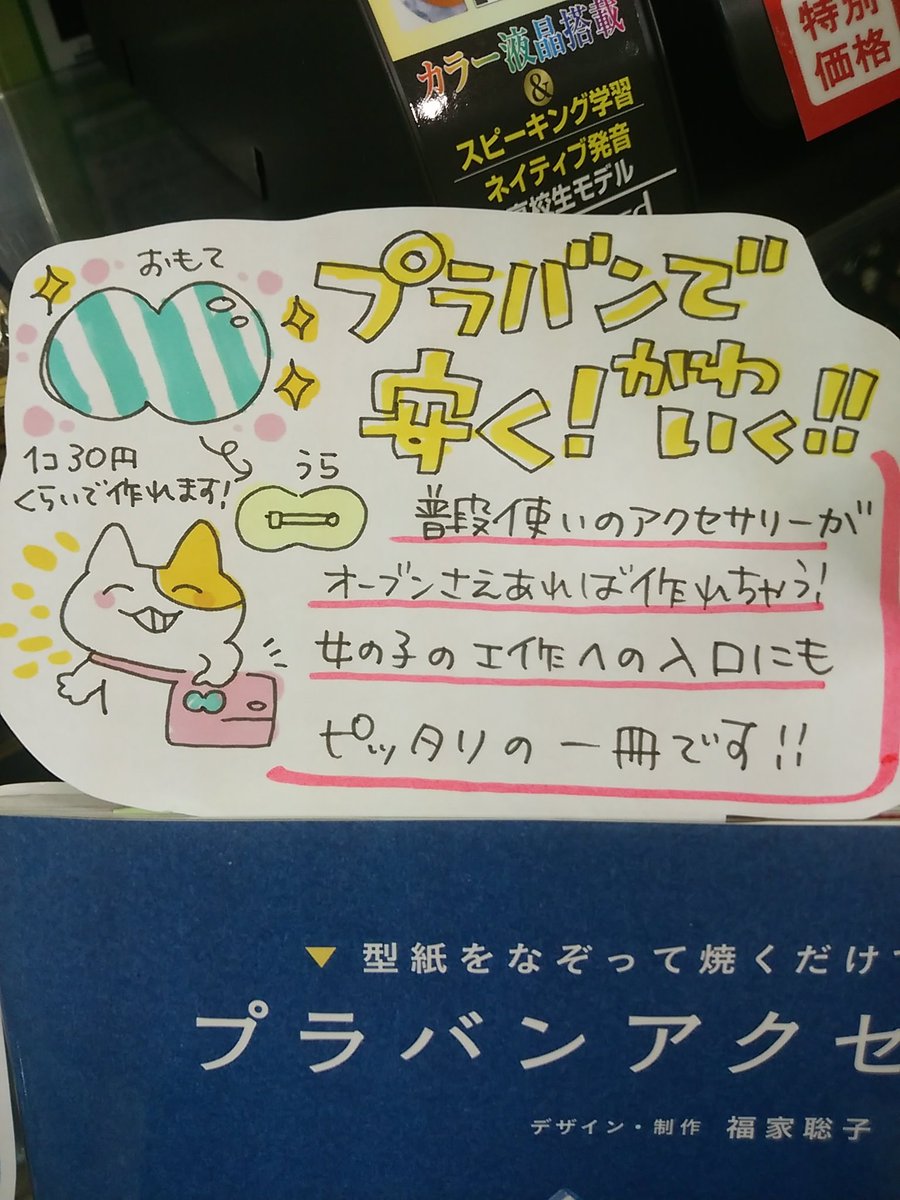 カラー液晶搭載
&
スピーキング学習
ネイティブ発音
高校生モデル
特別
価格
おもて
プラバンで
安く!かわいく!!
1コ30円
くらいで作れます!
うら
普段使いのアクセサリーが
オーブンさえあれば作れちゃう!
女の子の工作への入口にも
ピッタリの一冊です!!
▼型紙をなぞって焼くだけ
プラバンアクセ
デザイン・制作 福家聡子